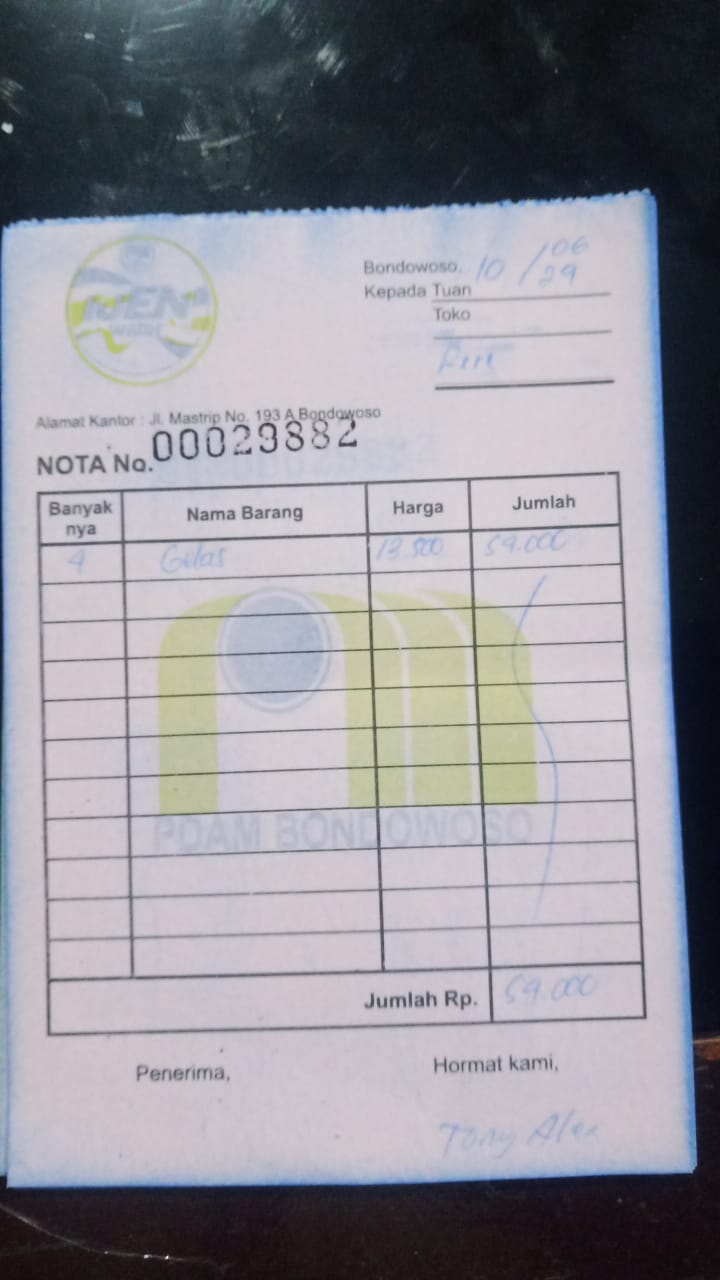 IJEN
water
Bondowoso, 10/06
29
Kepada Tuan
Toko
Alamat Kantor : Jl. Mastrip No. 193 A Bondowoso
NOTA No. 00029882
Banyak nya Nama Barang Harga Jumlah
4 Gelas 13.500 54.000
PDAM BONDOWOSO
Jumlah Rp. 54.000
Penerima, Hormat kami,
Tony Alex